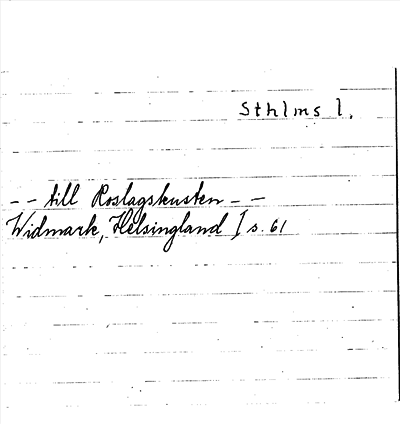 Sthlms l.
-- till Roslagskusten --
Widmark, Helsingland I s. 61